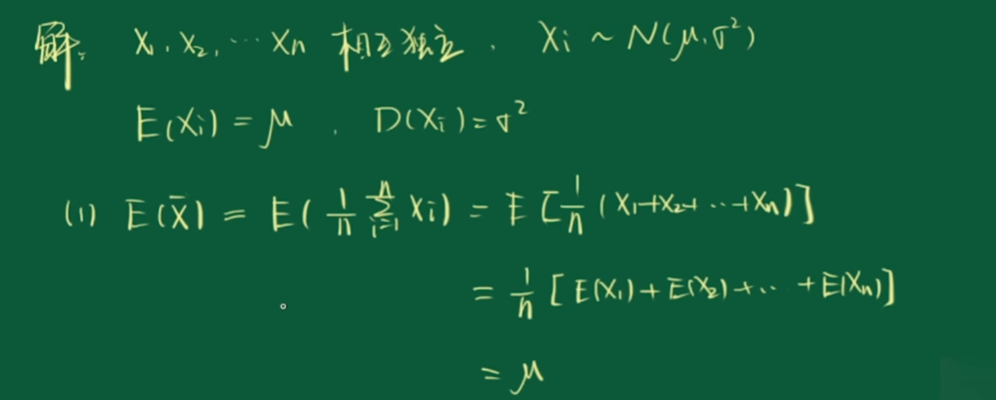 解: X₁, X₂, … Xn 相互独立, Xi ~ N(μ, σ²)
E(Xi) = μ , D(Xi) = σ²
(1) E(X̄) = E( 1/n ∑ᵢ₌₁ⁿ Xi) = E [1/n (X₁+X₂+ … +Xn)]
= 1/n [E(X₁) + E(X₂) + … + E(Xn)]
= μ